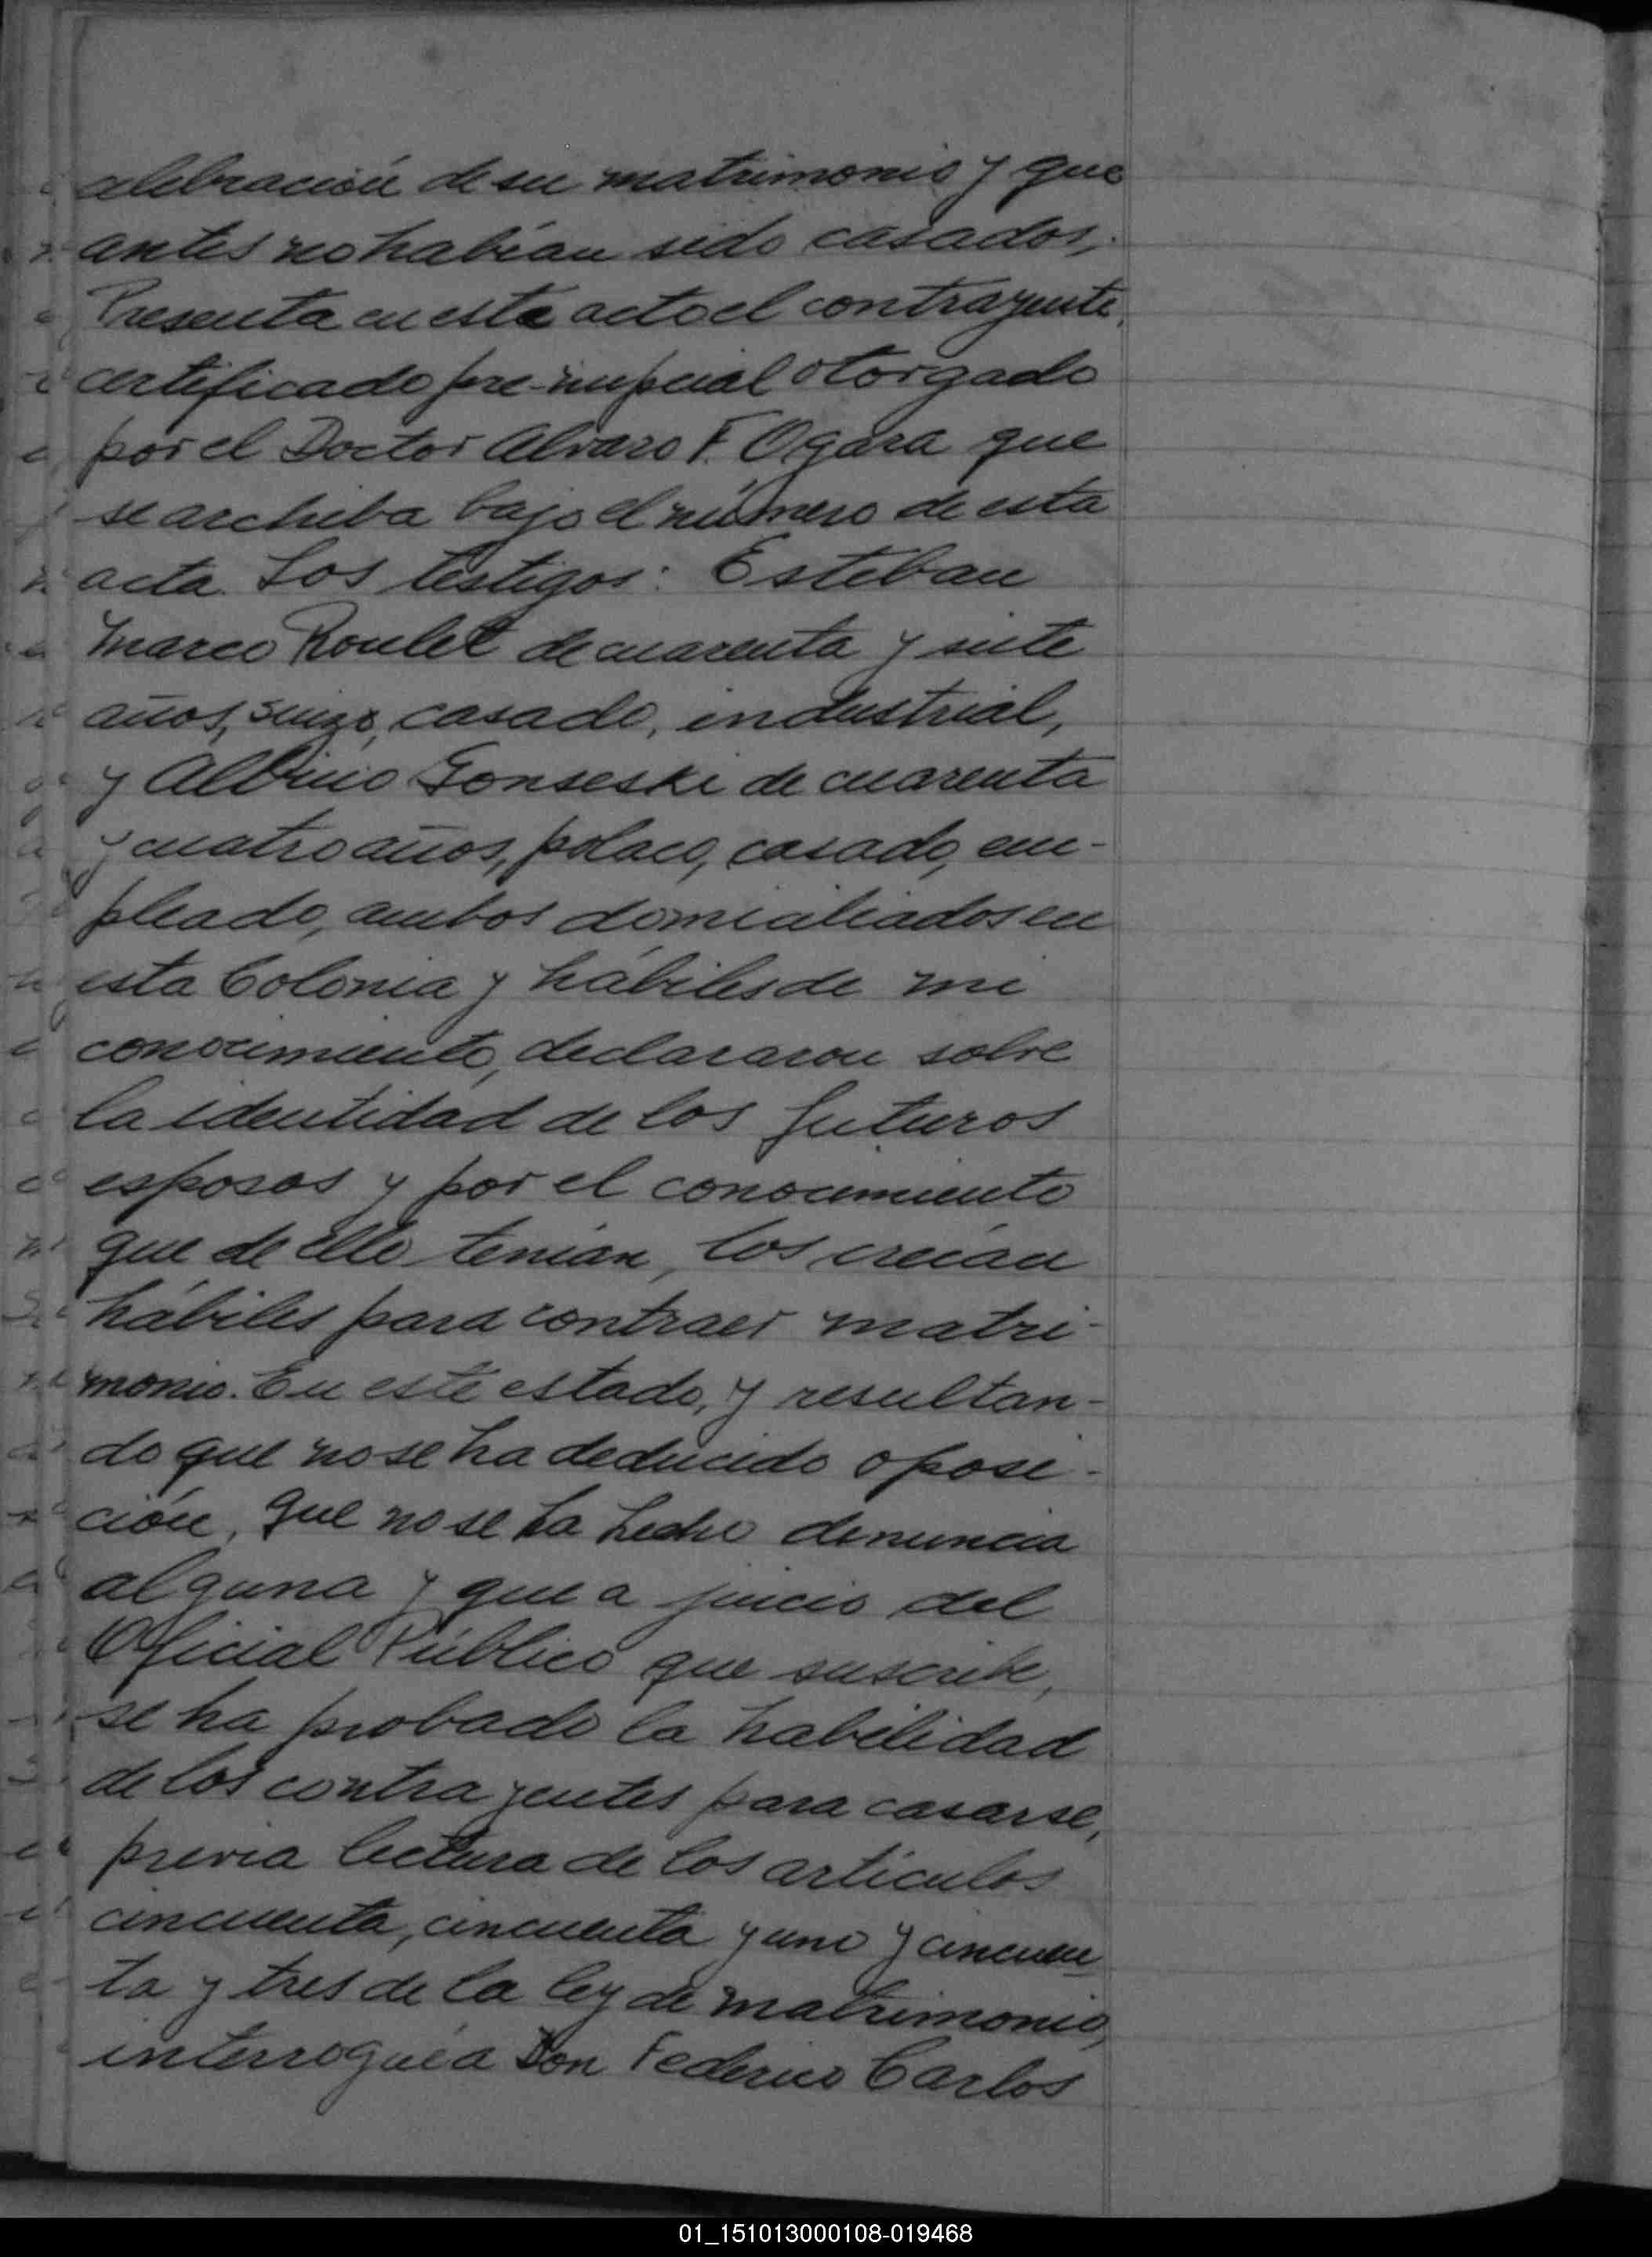 celebración de su matrimonio y que
antes no habían sido casados,
Presenta en este acto el contrayente,
certificado pre-nupcial otorgado
por el Doctor Alvaro F. Ogara que
se archiba bajo el número de esta
acta. Los testigos: Esteban
Marco Roulet de cuarenta y siete
años, suizo, casado, industrial,
y Albino Gonseski de cuarenta
y cuatro años, polaco, casado, em-
pleado, ambos domiciliados en
esta Colonia y hábiles de mi
conocimiento, declararon sobre
la identidad de los futuros
esposos y por el conocimiento
que de ello tenían, los creían
hábiles para contraer matri-
monio. En este estado, y resultan-
do que no se ha deducido oposi-
ción, que no se ha hecho denuncia
alguna y que a juicio del
Oficial Público que suscribe,
se ha probado la habilidad
de los contrayentes para casarse,
previa lectura de los artículos
cincuenta, cincuenta y uno y cincuen-
ta y tres de la ley de matrimonio,
interrogué a Don Federico Carlos
01_151013000108-019468